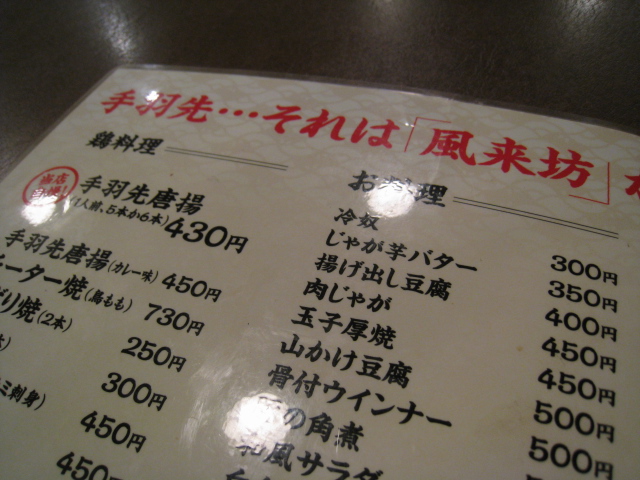 手羽先…それは「風来坊」
鶏料理
手羽先唐揚
(1人前、5本か6本) 430円
手羽先唐揚(カレー味) 450円
ーター焼(鳥もも) 730円
り焼(2本) 250円
300円
刺身) 450円
450円
お料理
冷奴 300円
じゃが芋バター 350円
揚げ出し豆腐 400円
肉じゃが 450円
玉子厚焼 450円
山かけ豆腐 500円
骨付ウインナー 500円
の角煮
和風サラダ